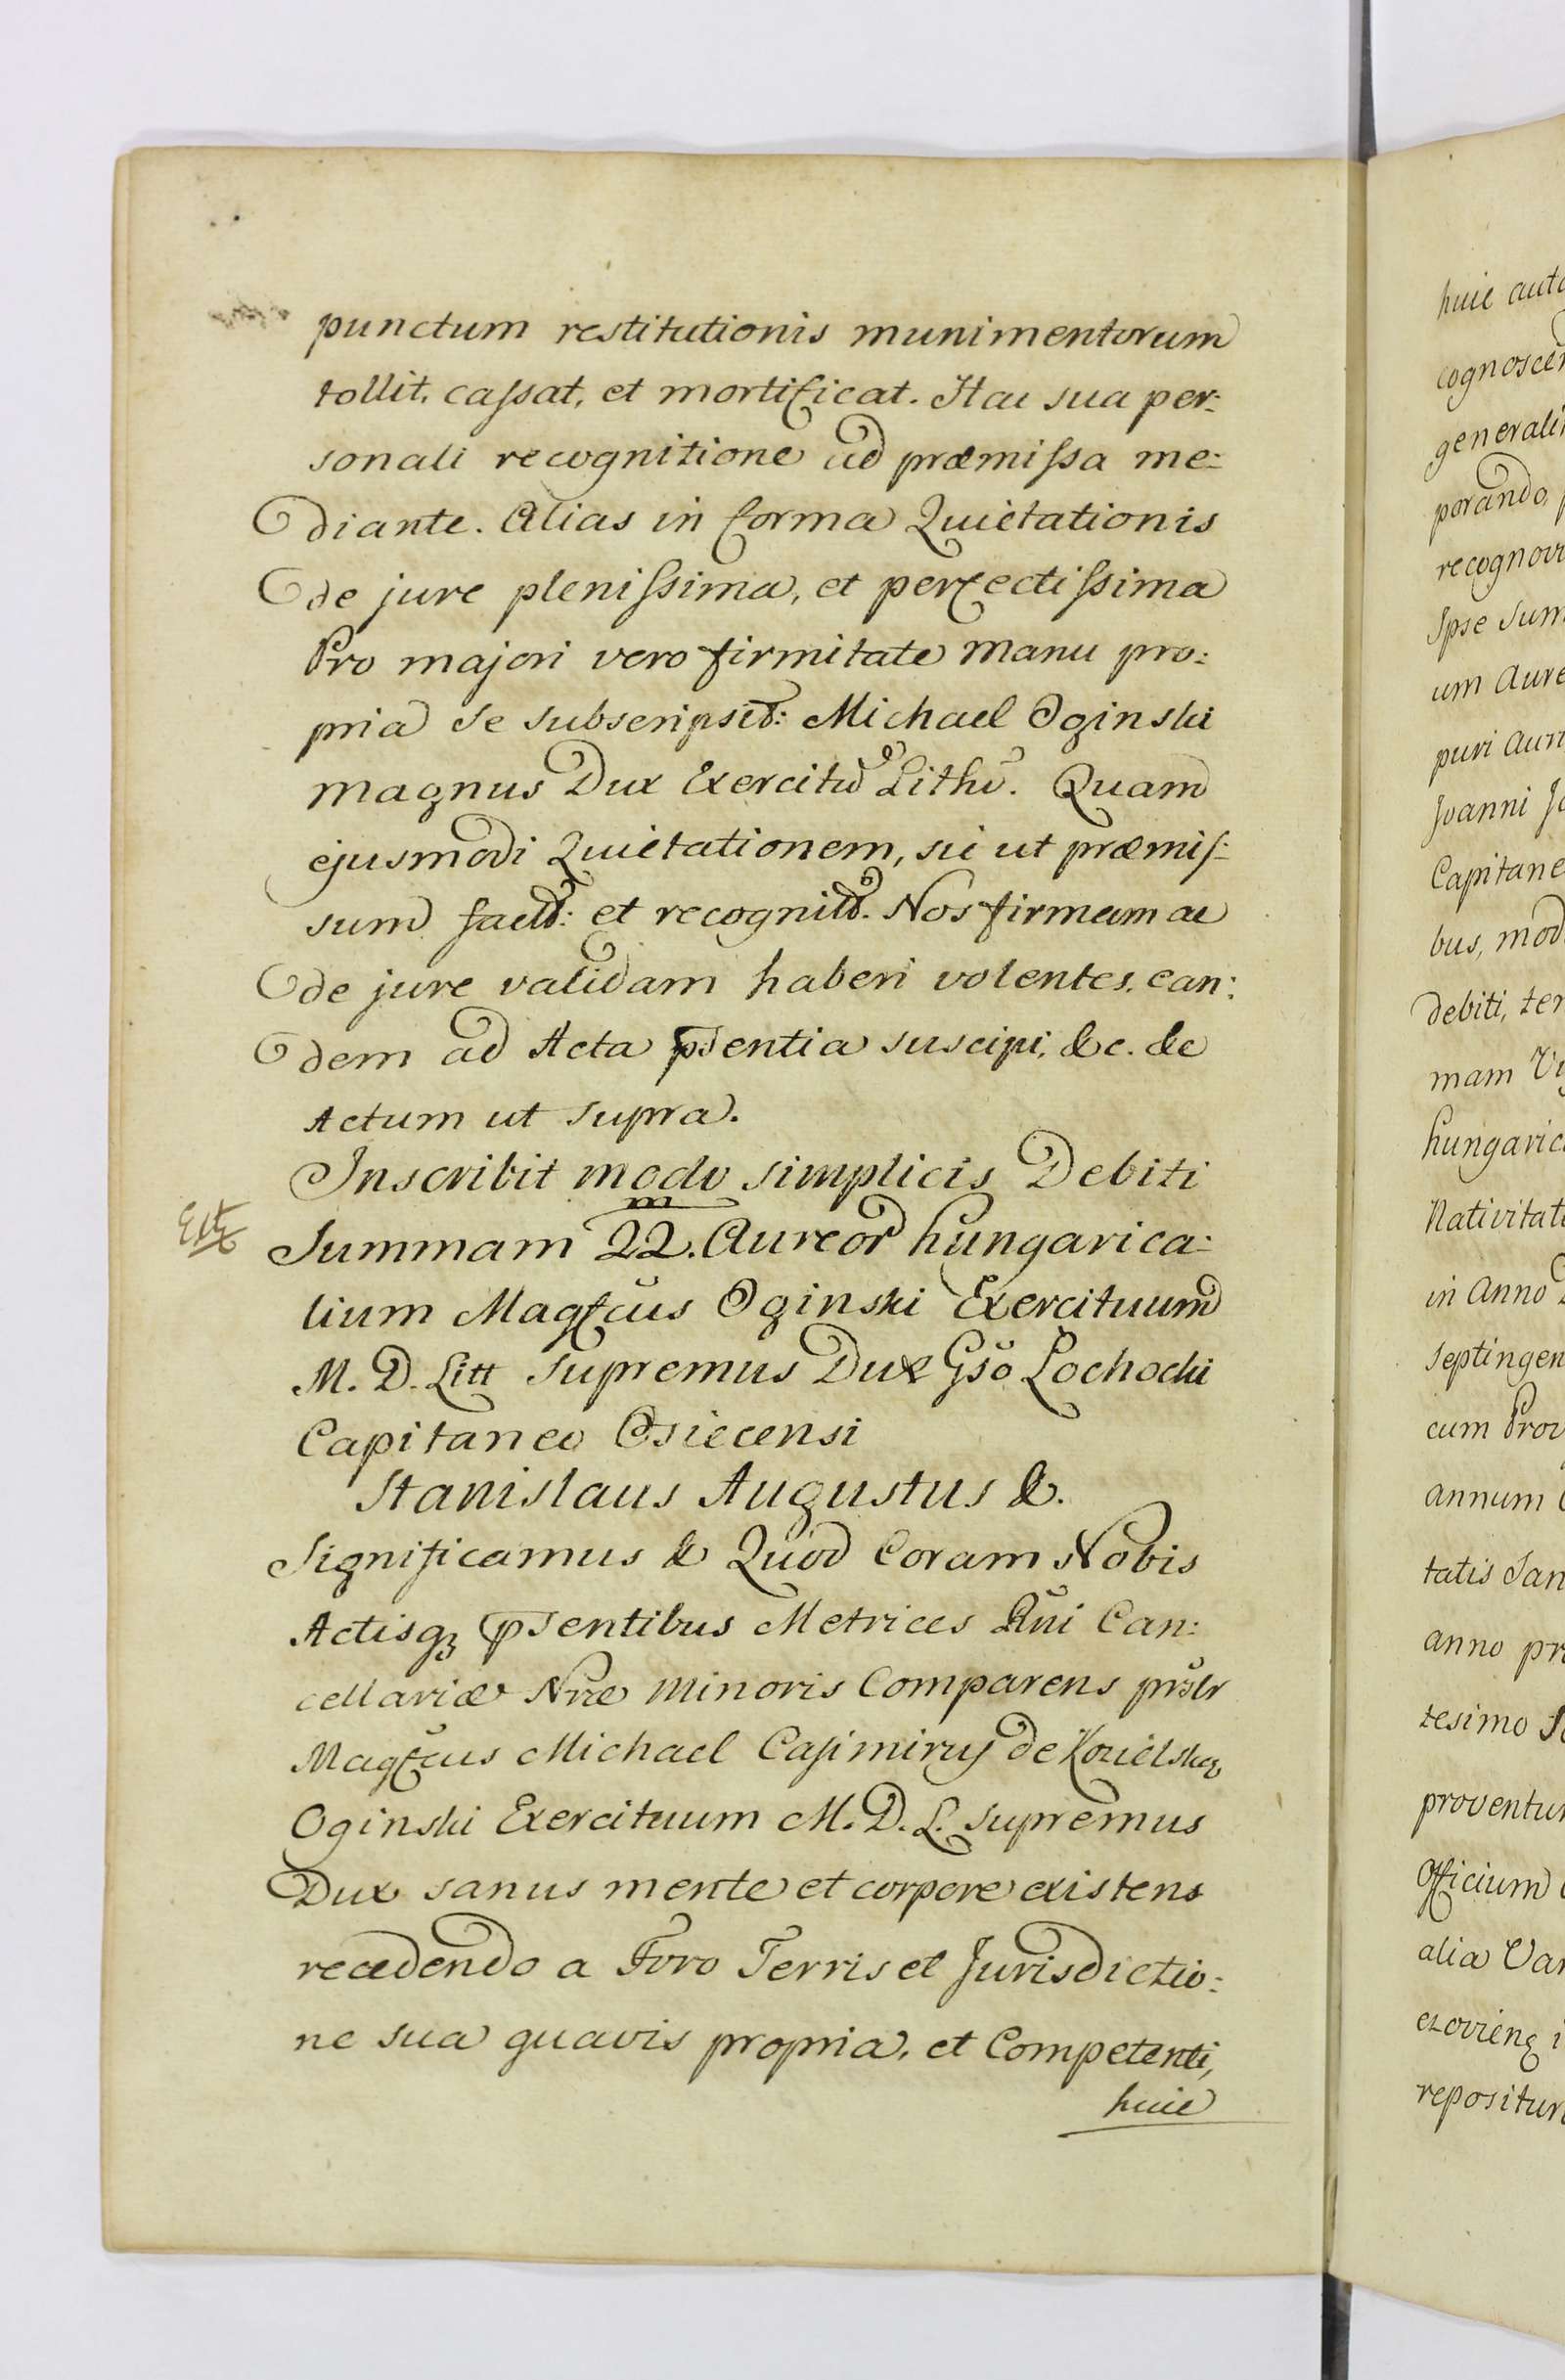 punctum restitutionis munimentorum
tollit, cassat, et mortificat. Hac sua per:
sonali recognitione ad præmissa me:
diante. Alias in forma Quietationis
de jure plenissima, et perfectissima
Pro majori vero firmitate manu pro:
pria se subscripsit: Michael Oginski
magnus Dux Exercitus Lithu. Quam
ejusmodi Quietationem, sic ut præmis:
sum factū: et recognitū. Nos firmam ac
de jure validam haberi volentes, ean:
dem ad Acta psentia suscipi, &c. &c
Actum ut supra.
Inscribit modo simplicis Debiti
Ext
Summam 22.m Aureor hungarica:
lium Magfcus Oginski Exercituum
M. D. Litt Supremus Dux Gso Lochocki
Capitaneo Osiecensi
Stanislaus Augustus &.
Significamus & Quod Coram Nobis
Actisq psentibus Metrices Rni Can:
cellariæ Nræ minoris Comparens prslr
Magfcus Michael Casimirus de Kozielsko
Oginski Exercituum M. D. L. supremus
Dux sanus mente et corpore existens
recedendo a Foro Terris et Jurisdictio:
ne sua quavis propria, et Competenti,
huic
huic aut
cognoscen
generali
porando,
recognovi
Ipse Sum
um Aure
puri Auri
Joanni Jo
Capitane
bus, mod
debiti, ter
mam Vi
hungaric
Nativitat
in Anno
septingen
cum Prov
annum
tatis San
anno pr
tesimo
proventu
Officium
alia Var
repositur